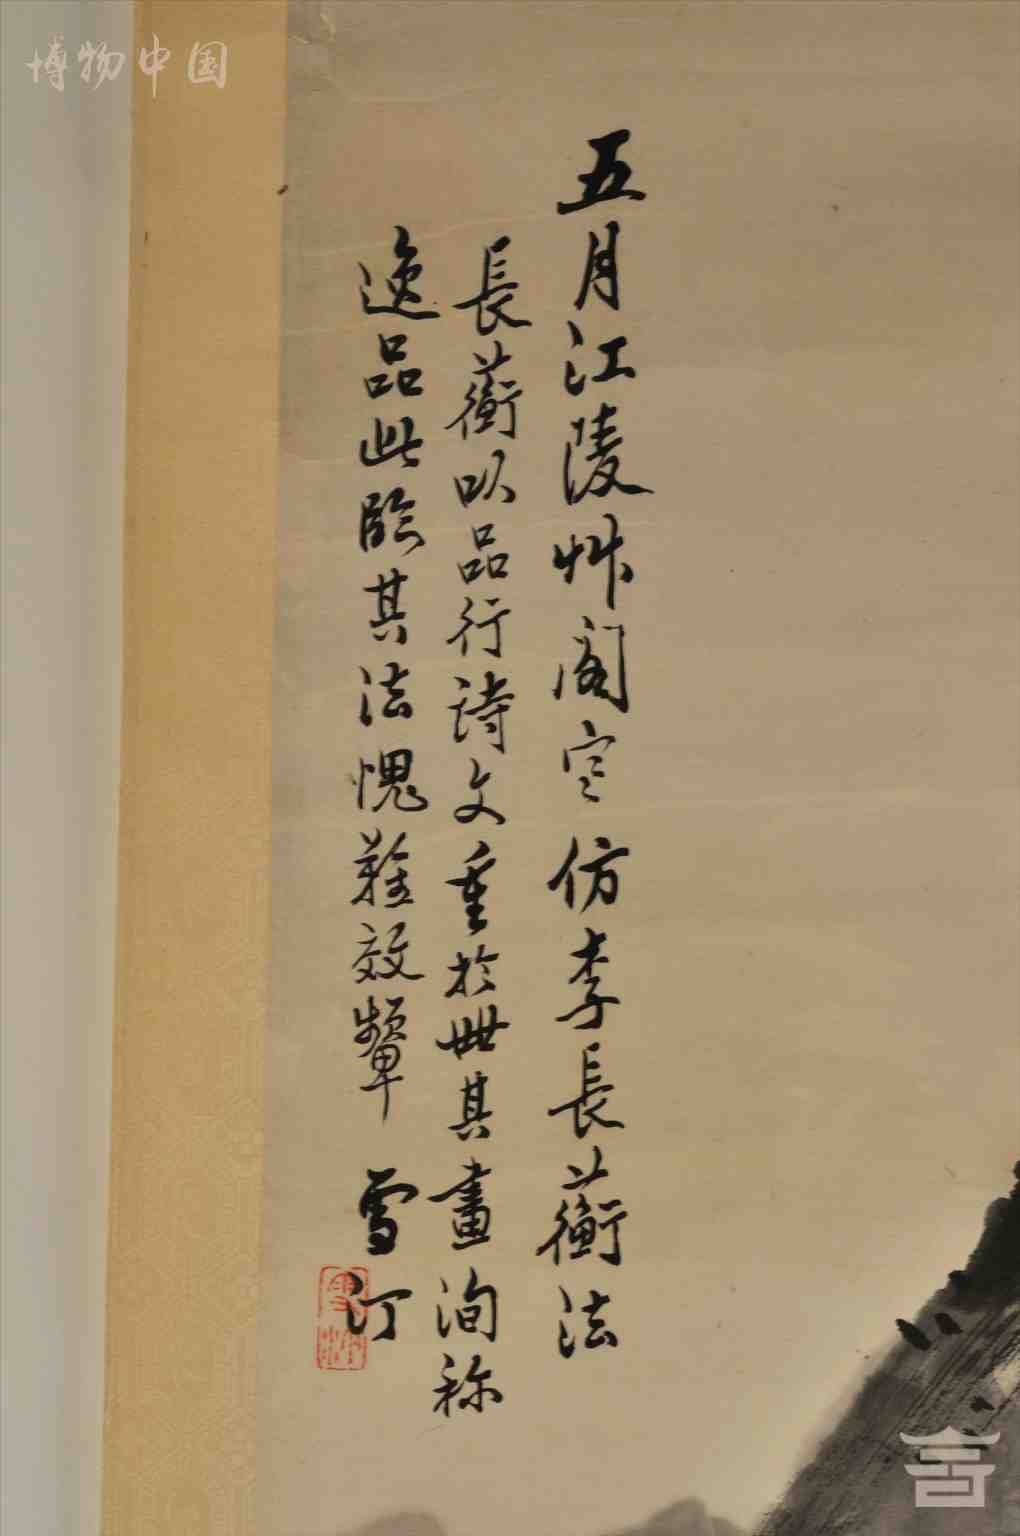 博物中国
五月江陵艸阁寒仿李長蘅法
長蘅以品行詩文重於世其畫洵称
逸品此臨其法愧難效顰 雪汀